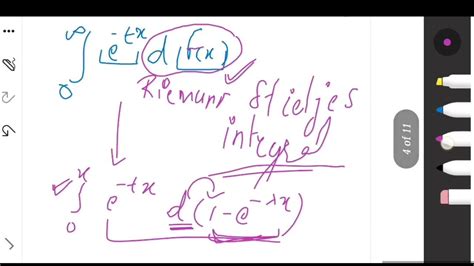 ∫₀^∞ e^{-tx} d(F(x))
Riemann Stieltjes
integral
∫₀^x e^{-tx} d(1-e^{-λx})
4 of 11